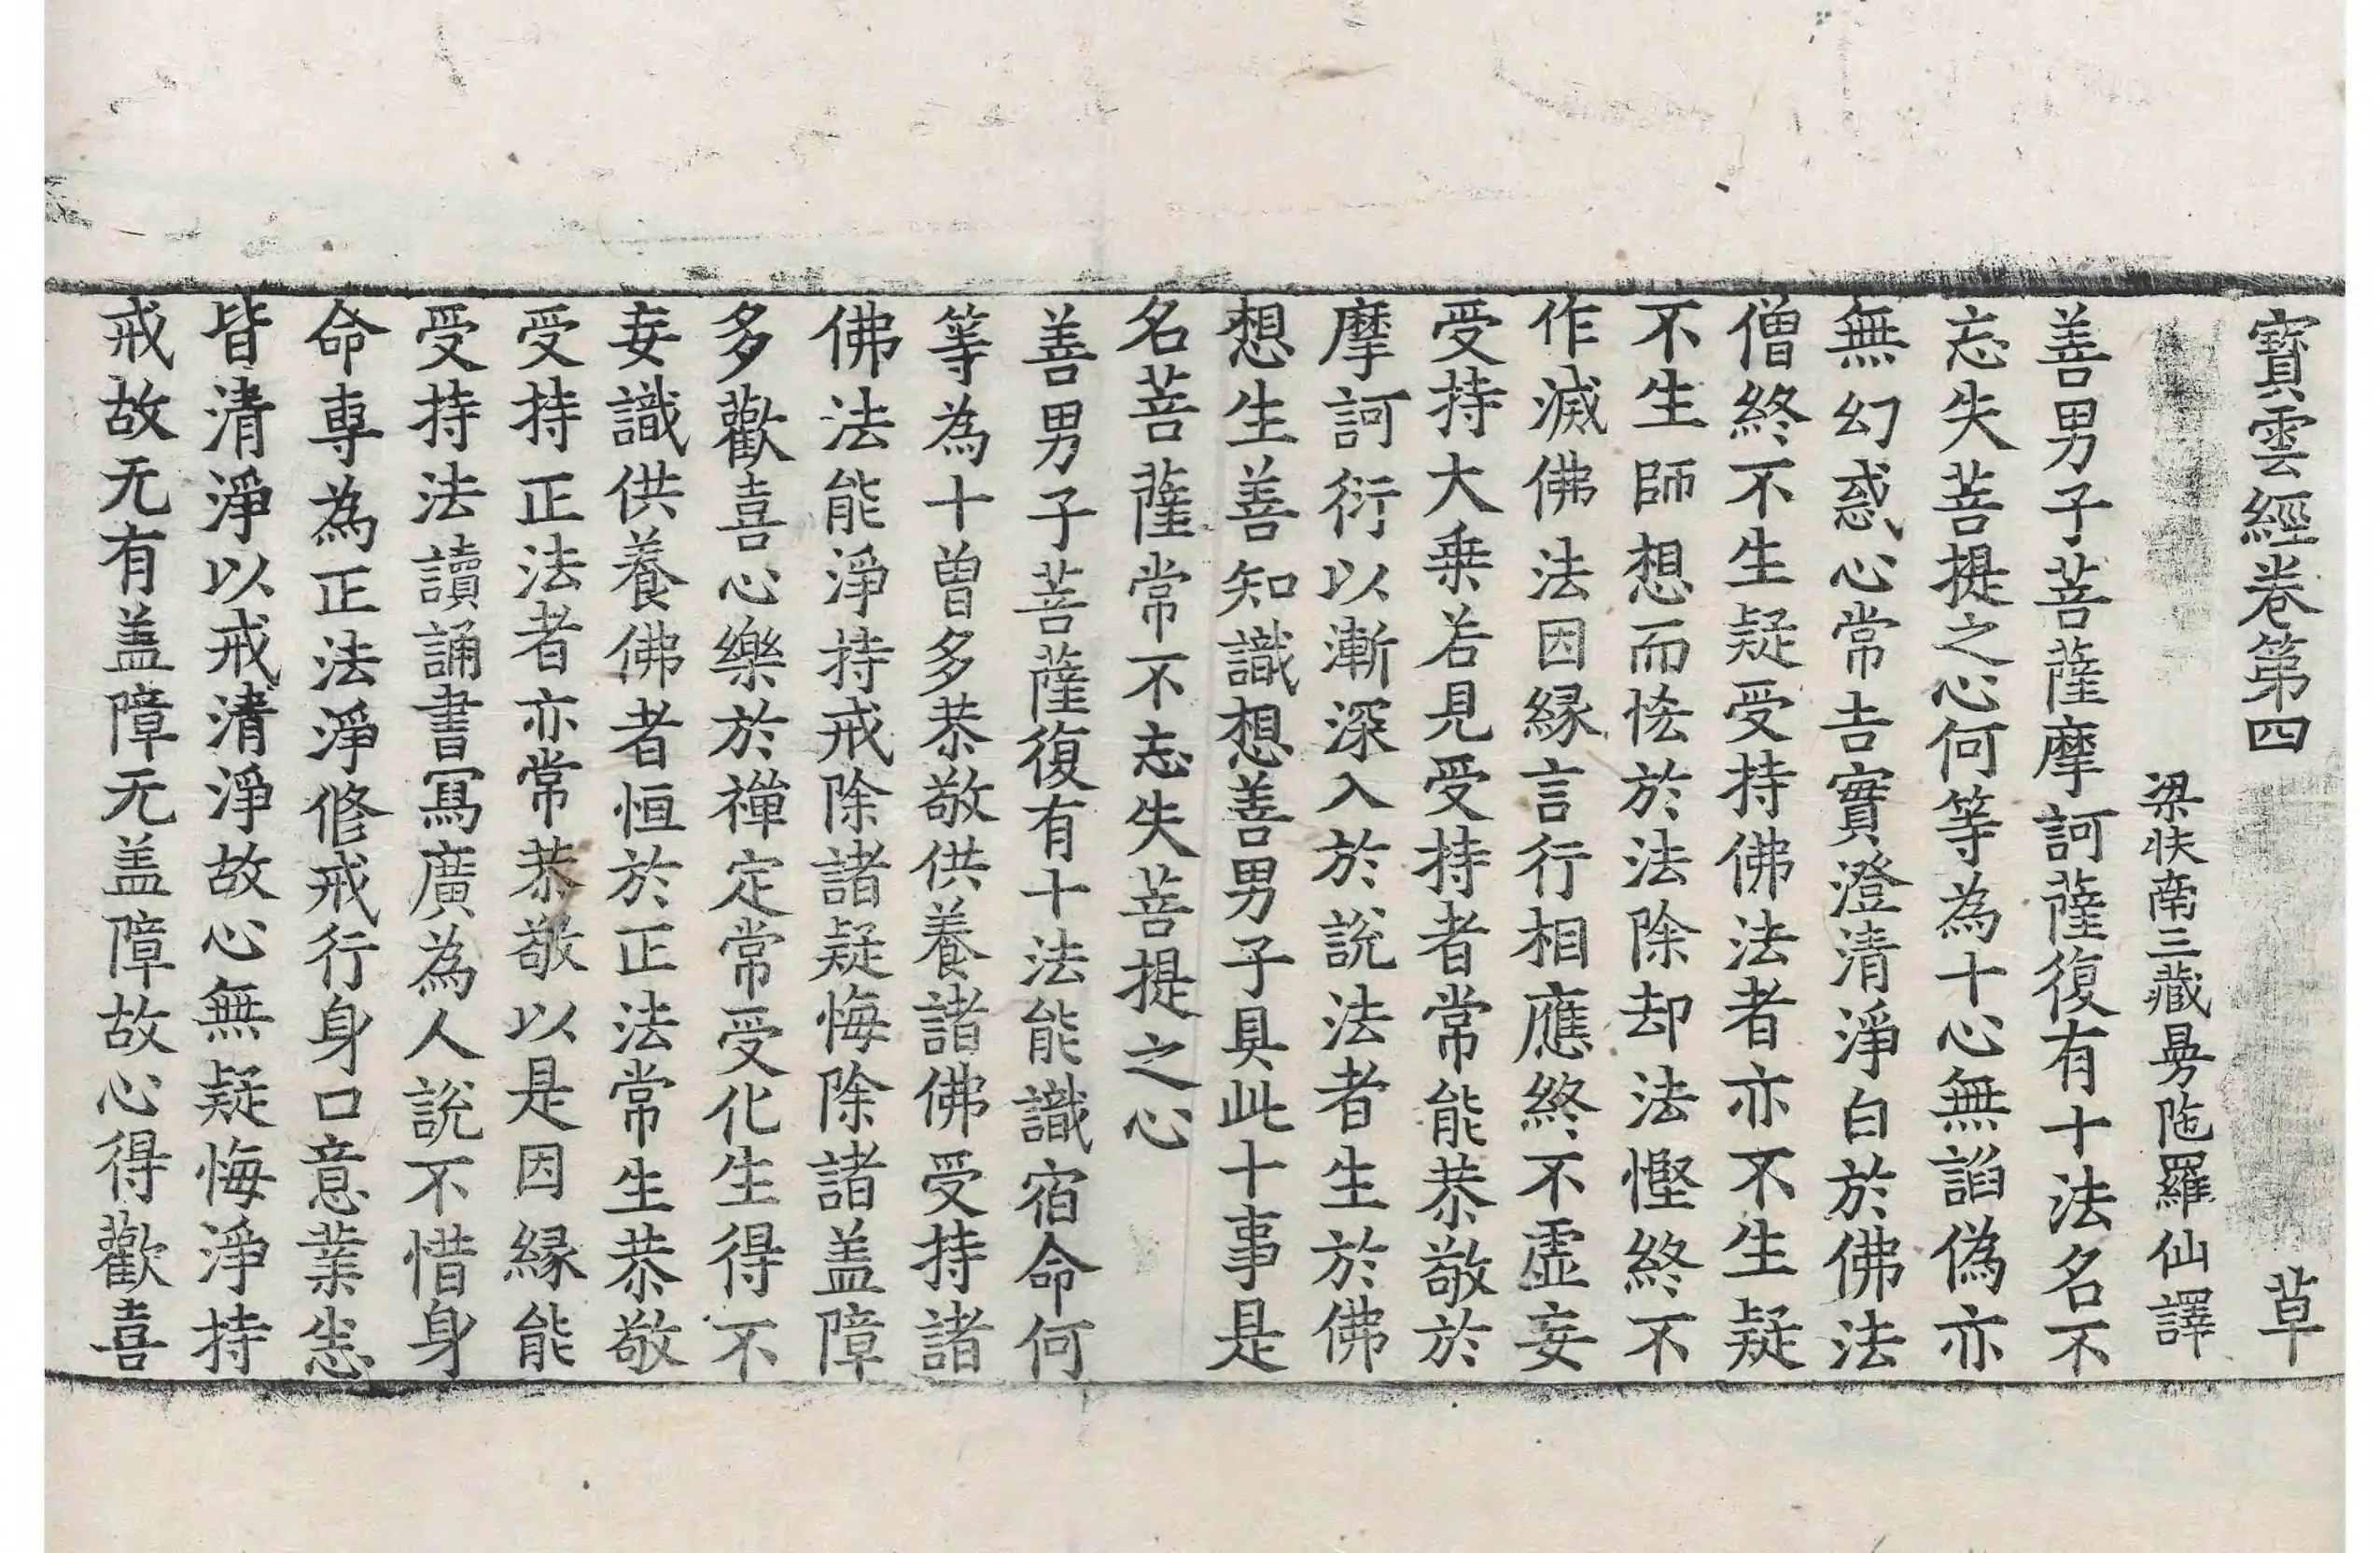 寶雲經卷第四 草
梁扶南三藏曼陁羅仙譯
善男子菩薩摩訶薩復有十法名不
忘失菩提之心何等為十心無諂偽亦
無幻惑心常吉實澄清淨白於佛法
僧終不生疑受持佛法者亦不生疑
不生師想而恡於法除却法慳終不
作滅佛法因縁言行相應終不虛妄
受持大乗若見受持者常能恭敬於
摩訶衍以漸深入於說法者生於佛
想生善知識想善男子具此十事是
名菩薩常不忘失菩提之心
善男子菩薩復有十法能識宿命何
等為十曾多恭敬供養諸佛受持諸
佛法能淨持戒除諸疑悔除諸盖障
多歡喜心樂於禪定常受化生得不
妄識供養佛者恒於正法常生恭敬
受持正法者亦常恭敬以是因縁能
受持法讀誦書寫廣為人說不惜身
命專為正法淨修戒行身口意業恙
皆清淨以戒清淨故心無疑悔淨持
戒故无有盖障无盖障故心得歡喜